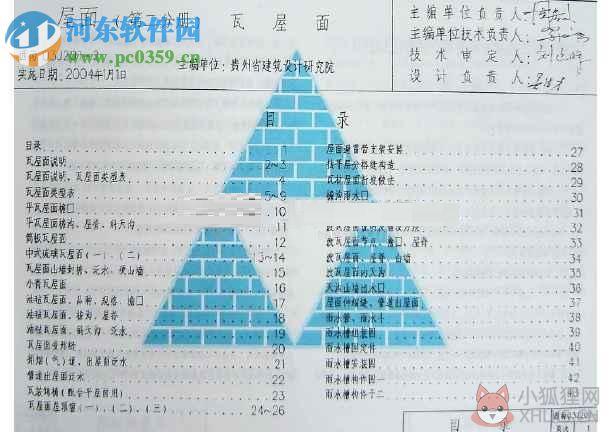 屋面（第二分册） 瓦屋面
河东软件园
www.pc0359.cn
实施日期:2004年1月1日
主编单位：贵州省建筑设计研究院
主编单位负责人
主编单位技术负责人
技术审定人
设计负责人
目 录
目录 1
瓦屋面说明 2~3
瓦屋面说明、瓦屋面类型表 4
瓦屋面类型表 5~9
平瓦屋面檐口 10
平瓦屋面檐沟、屋脊、斜天沟 11
筒板瓦屋面 12
中式琉璃瓦屋面(一)、(二) 13~14
瓦屋面山墙封檐、泛水、硬山墙 15
小青瓦屋面 16
油毡瓦屋面、品种、规格、檐口 17
油毡瓦屋面、檐沟、屋脊 18
油毡瓦屋面、斜天沟、泛水 19
瓦屋出变形缝 20
排烟(气)道、出屋面泛水 21
管道出屋面泛水 22
瓦装饰檐(配合平屋面用) 23
瓦屋面屋顶窗(一)、(二)、(三) 24~26
屋面避雷带支架安装 27
找平层分格缝构造 28
29
檐沟雨水口 30
31
32
33
34
35
天沟山墙出水口 36
屋面伸缩缝、管道出屋面 37
雨水管、雨水斗 38
雨水槽组装图 39
雨水槽固定件 40
雨水槽安装图 41
雨水槽构件图一 42
雨水槽构件图二 43
目 录
小狐狸网
XHLI.CN